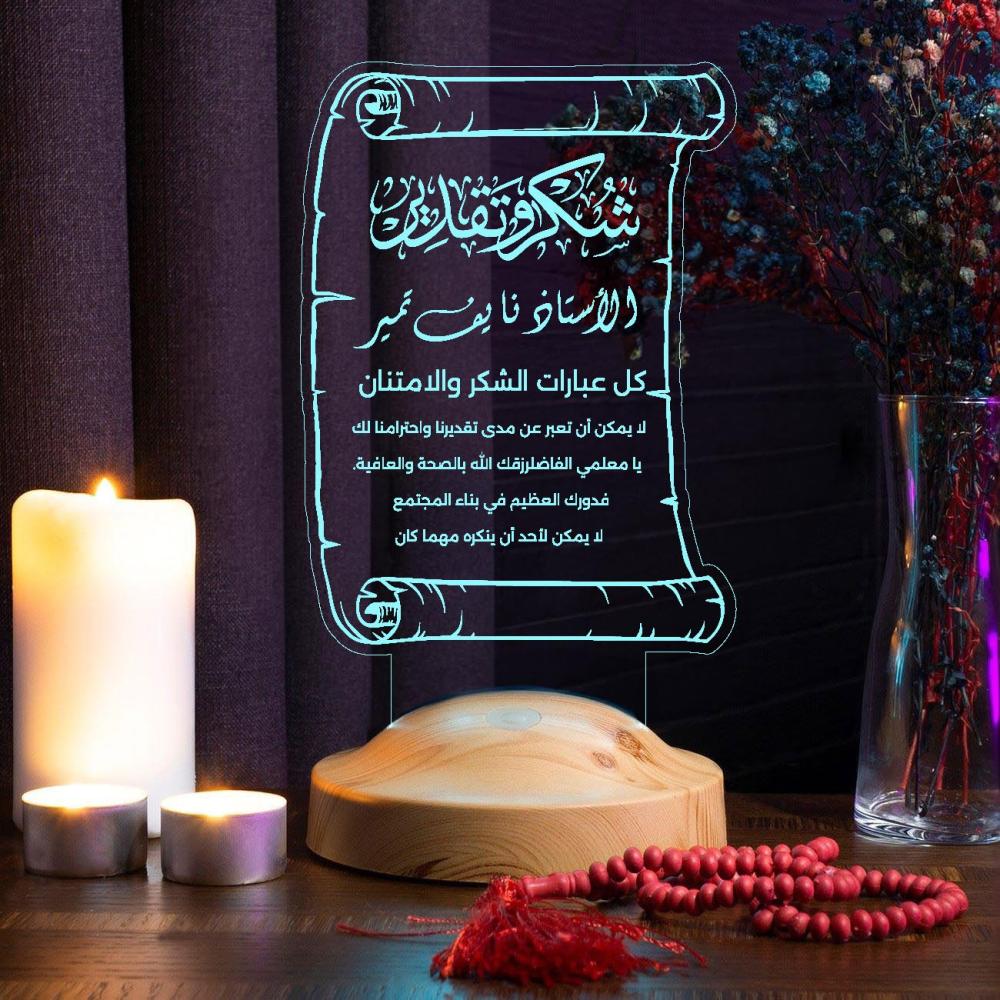 شُكر وَتَقدِير
الأستاذ نايف تمير
كل عبارات الشكر والامتنان
لا يمكن أن تعبر عن مدى تقديرنا واحترامنا لك
يا معلمي الفاضلرزقك الله بالصحة والعافية.
فدورك العظيم في بناء المجتمع
لا يمكن لأحد أن ينكره مهما كان